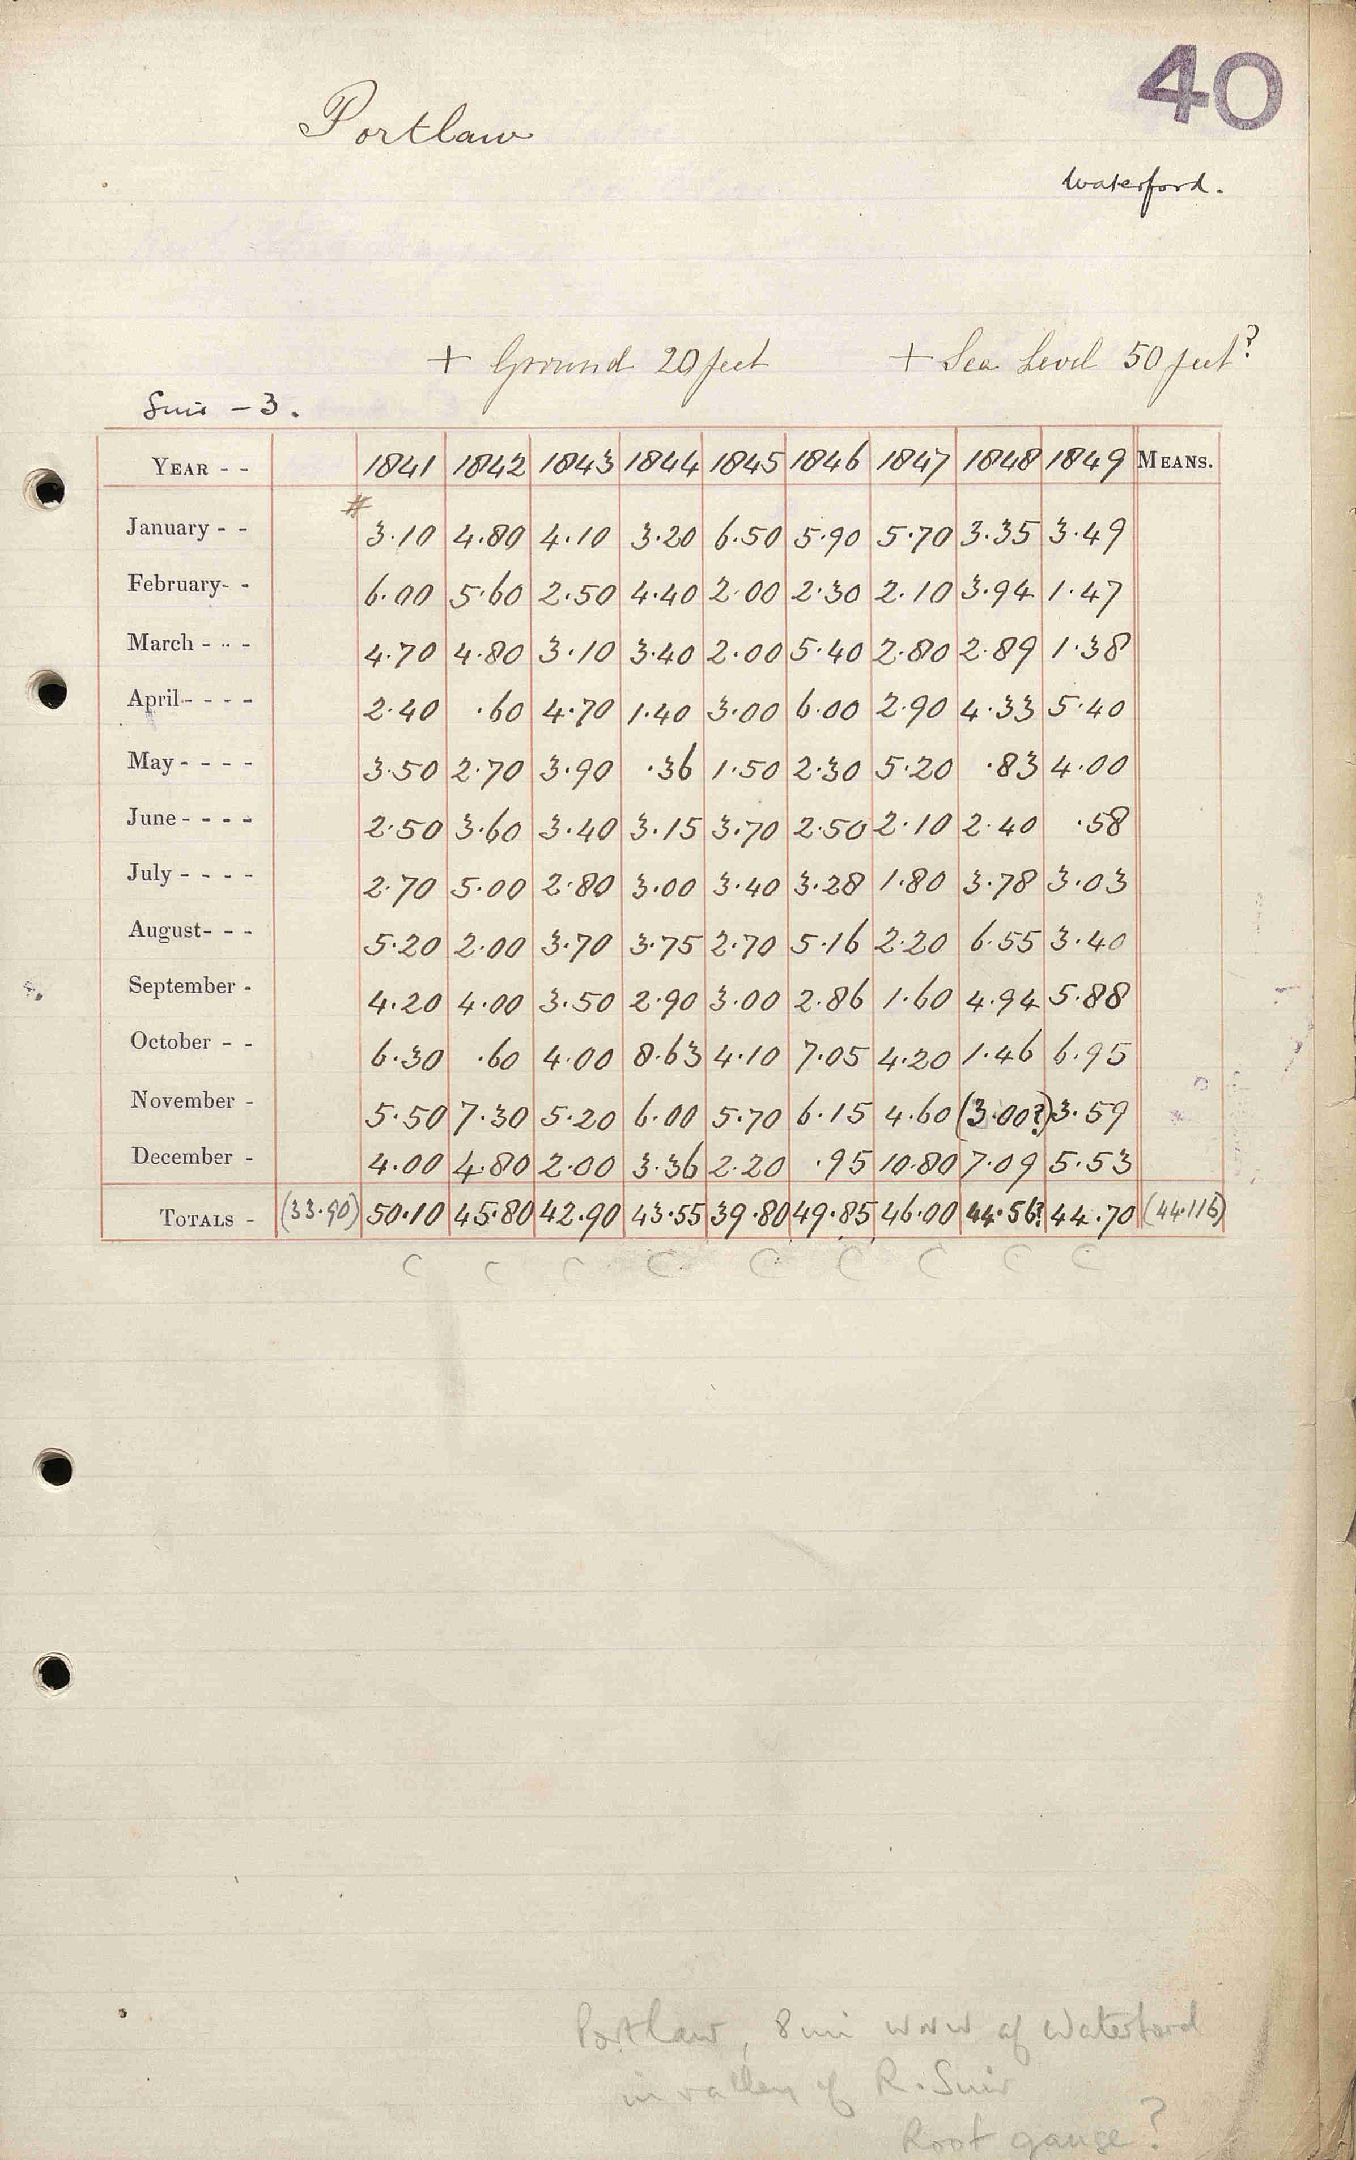 40
Portlaw
Waterford.
+ Ground 20 feet + Sea Level 50 feet?
Suir - 3.
YEAR - - 1841 1842 1843 1844 1845 1846 1847 1848 1849 MEANS.
#
January - - 3.10 4.80 4.10 3.20 6.50 5.90 5.70 3.35 3.49
February- - 6.00 5.60 2.50 4.40 2.00 2.30 2.10 3.94 1.47
March - - - 4.70 4.80 3.10 3.40 2.00 5.40 2.80 2.89 1.38
April- - - - 2.40 .60 4.70 1.40 3.00 6.00 2.90 4.33 5.40
May - - - - 3.50 2.70 3.90 .36 1.50 2.30 5.20 .83 4.00
June - - - - 2.50 3.60 3.40 3.15 3.70 2.50 2.10 2.40 .58
July - - - - 2.70 5.00 2.80 3.00 3.40 3.28 1.80 3.78 3.03
August- - - 5.20 2.00 3.70 3.75 2.70 5.16 2.20 6.55 3.40
September - 4.20 4.00 3.50 2.90 3.00 2.86 1.60 4.94 5.88
October - - 6.30 .60 4.00 8.63 4.10 7.05 4.20 1.46 6.95
November - 5.50 7.30 5.20 6.00 5.70 6.15 4.60 (3.00?) 3.59
December - 4.00 4.80 2.00 3.36 2.20 .95 10.80 7.09 5.53
TOTALS - (33.90) 50.10 45.80 42.90 43.55 39.80 49.85 46.00 44.56? 44.70 (44.116)
C C C C C C C C C
Portlaw, 8 mi WNW of Waterford
in valley of R. Suir
Roof gauge?